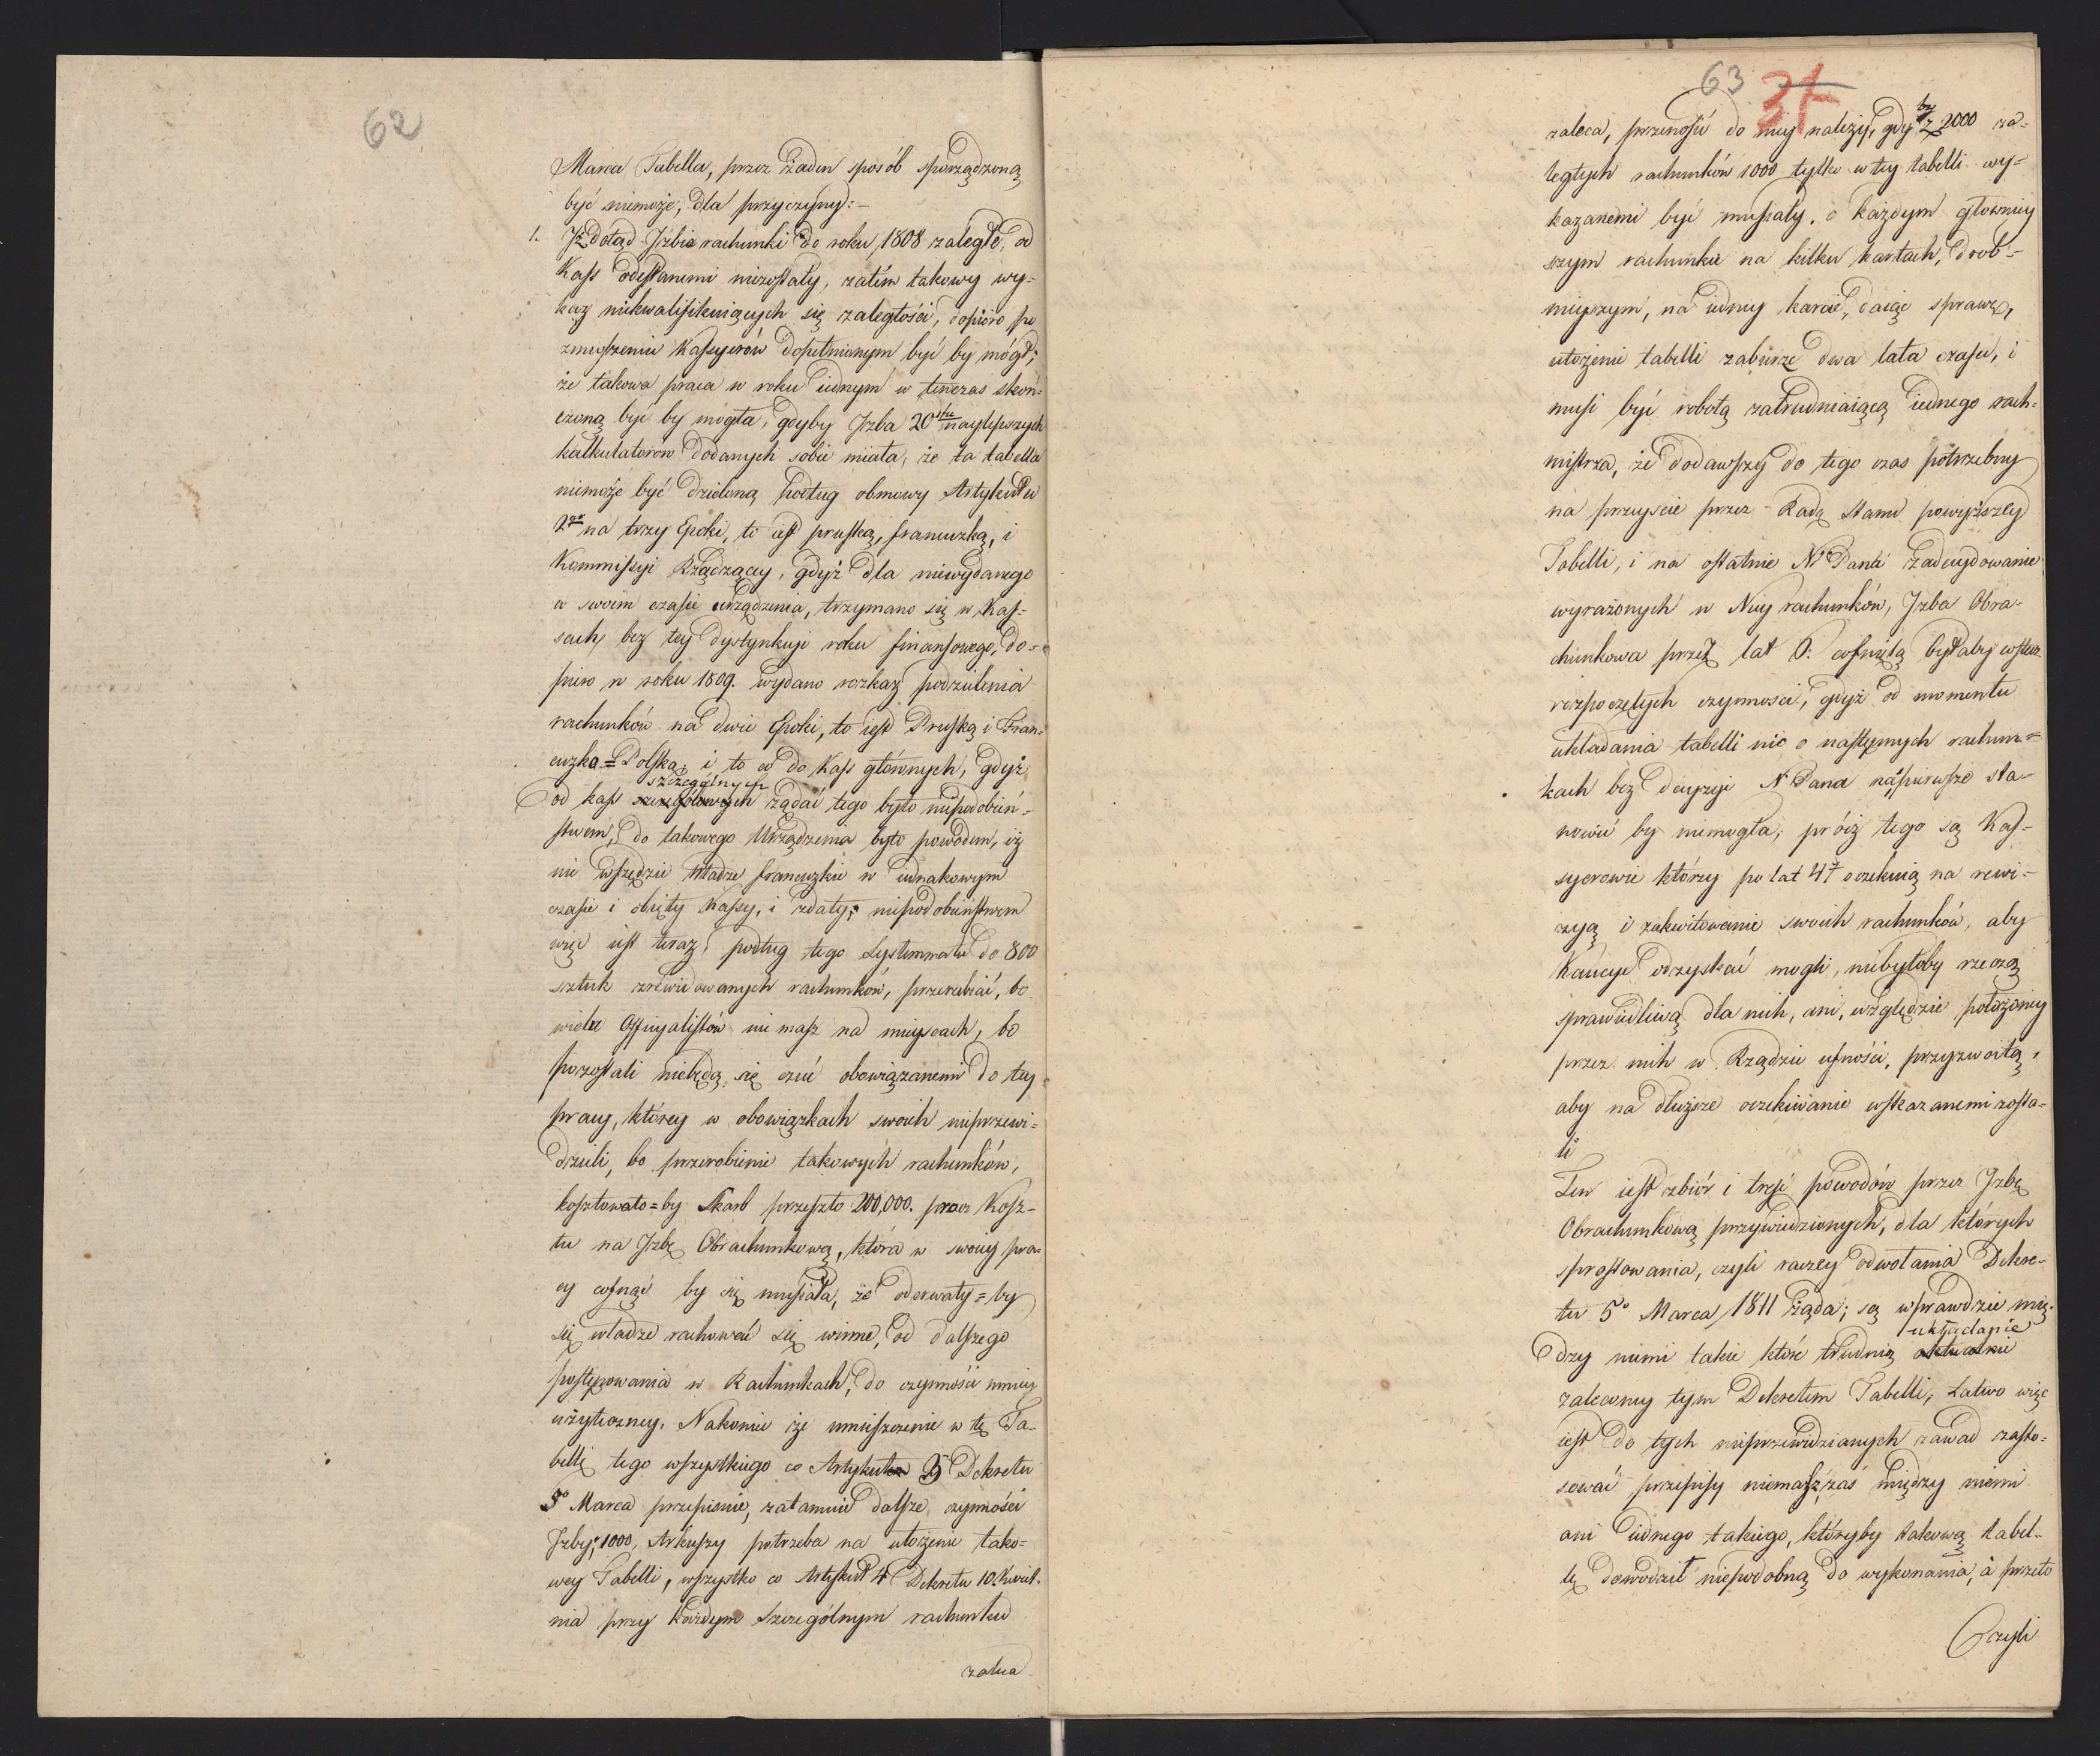 62
Marca Tabella, przez żaden sposób sporządzoną
być niemoże, dla przyczyny:-
1. Jż dotąd Jzbie rachunki do roku 1808 zaległe, od
Kass odesłanemi niezostały, zatém takowy wy=
kaz niekwalifikuiących się zaległości, dopiéro po
zmuszeniu Kassyerów dopełnionym być by mógł;
że takowa praca w roku iednym w tenczas skoń=
czoną być by mogła, gdyby Jzba 20stu naylepszych
kalkulatorów dodanych sobie miała, że ta tabella
niemoże być dzieloną podług obmowy Artykułu
2go na trzy Epoki, to iest pruską, francuzką, i
Kommissyi Rządzącey, gdyż dla niewydanego
w swoim czasie urządzenia, trzymano się w Kas=
sach, bez tey dystynkcyi roku finansowego, do=
piero w roku 1809. wydano rozkaz podzielenia
rachunków na dwie Epoki, to iest Pruską i Fran=
cuzko=Polską; i to od do Kass głównych, gdyż
szczególnych
od kass szczegółowych żądać tego było niepodobień=
stwem, do takowego Urządzenia było powodem, iż
nie wszędzie Władze francuzkie w iednakowym
czasie i obięły Kassy, i zdały; niepodobieństwem
więc iest teraz, podług tego Systemmatu do 800
sztuk zrewidowanych rachunków, przerabiać, bo
wielu Officyalistów nie masz na mieyscach, bo
pozostali niebędą się czuć obowiązanemi do tey
pracy, którey w obowiązkach swoich nieprzewi=
dzieli, bo przerobienie takowych rachunków,
kosztowało=by Skarb przeszło 200,000. prócz Kosz=
tu na Jzbę Obrachunkową, która w swoiey pra=
cy cofnąć by się musiała, że oderwały=by
się władze rachować się winne, od dalszego
postępowania w Rachunkach, do czynności mniey
użyteczney. Nakoniec że umieszczenie w tę Ta=
bellę tego wszystkiego co Artykuł 3 Dekretu
5o Marca przepisuie, zatamuie dalsze czynności
Jzby; 1000, Arkuszy potrzeba na ułożenie tako=
wey Tabelli, wszystko co Artykuł 4 Dekretu 10. Kwiet=
nia przy każdym szczególnym rachunku
zaleca
63 31
zaleca, przenosić do niey należy, gdyby z 2000 za=
ległych rachunków 1000 tylko w tey tabelli wy=
kazanemi być musiały, o każdym główniey
szym rachunku na kilku kartach, drob=
nieyszym, na iedney karcie, daiąc sprawę,
ułożenie tabelli zabierze dwa lata czasu, i
musi być robotą zatrudniaiącą iednego rach=
mistrza, że dodawszy do tego czas potrzebny
na przeyście przez Radę Stanu powyższey
Tabelli, i na ostatnie N. Pana zadecydowanie
wyrażonych w Niey rachunków, Jzba Obra=
chunkowa przez lat 6. cofniętą byłaby wstecz
rozpoczętych czynności, gdyż od momentu
układania tabelli nic o następnych rachun=
kach bez decyzyi N. Pana na pierwsze sta=
nowić by niemogła, prócz tego są Kas=
syerowie którzy po lat 4 oczekuią na rewi=
zyą i zakwitowanie swoich rachunków, aby
Kaucye odzyskać mogli, niebyłoby rzeczą
sprawiedliwą dla nich, ani, względzie położoney
przez nich w Rządzie ufności, przyzwoitą,
aby na dłuższe oczekiwanie wskazanemi zosta=
li
Ten iest zbiór i treść powodów przez Jzbę
Obrachunkową przywiedzionych, dla których
sprostowania, czyli raczey odwołania Dekre=
tu 5o Marca 1811 żąda; są wprawdzie mię=
układanie
dzy niemi takie które trudnią
zaleconey tym Dekretem Tabelli, Łatwo więc
iest do tych nieprzewidzianych zawad zasto=
sować przepisy niemasz zaś między niemi
ani iednego takiego, któryby takową tabel=
lę dowodził niepodobną do wykonania, a przeto
Czyli